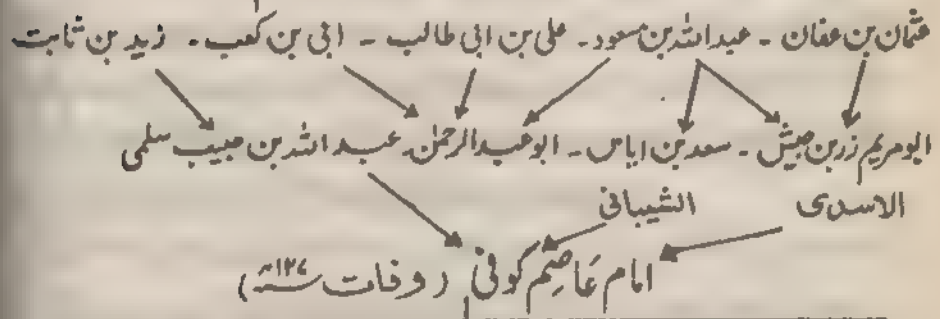 عثمان بن عفان ۔ عبداللہ بن مسعود۔ علی بن ابی طالب ۔ ابی بن کعب ۔ زید بن ثابت
ابومریم زر بن حبیش ۔ سعد بن ایاس ۔ ابوعبدالرحمٰن۔ عبداللہ بن حبیب سلمی
الاسدی الشیبانی
امام عَاصِم کوفی (وفات ۱۲۷ھ)